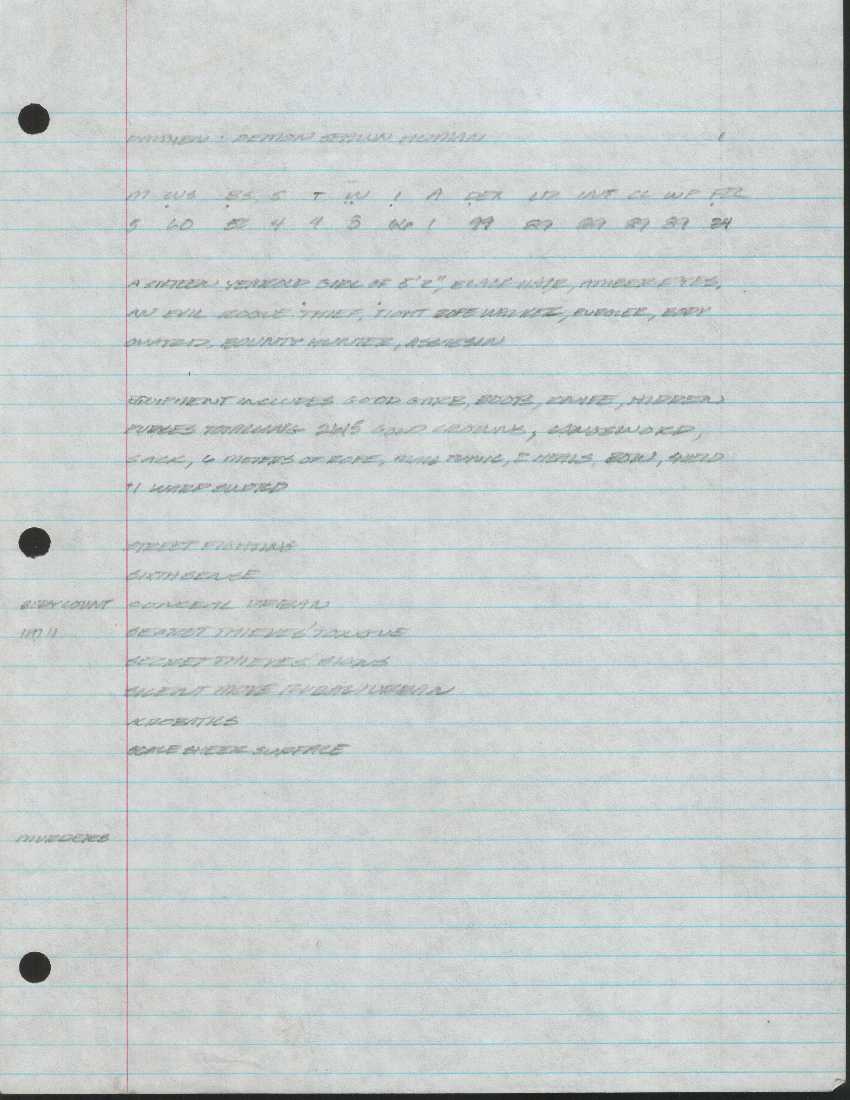 DEMON SPAWN HUMAN
M WS BS S T W I A DEX LD INT CL WP FEL
5 60 52 4 4 3 66 1 99 29 29 29 39 24
A SIXTEEN YEAROLD GIRL OF 5'2", BLACK HAIR, AMBER EYES,
AN EVIL ROGUE THIEF, TIGHT ROPE WALKER, BURGLER, BODY
BOUNTY HUNTER, ASSASSIN
EQUIPMENT INCLUDES GOOD GARB, BOOTS, KNIFE, HIDDEN
PURSES TOTALLING GOLD CROWNS,
SACK, 6 METERS OF ROPE, MAIL TUNIC, 2 MEALS, BOW, SHIELD
+1 WARP SWORD
STREET FIGHTING
SIXTH SENSE
BODY COUNT CONCEAL URBAN
SECRET THIEVES' TONGUE
SECRET THIEVES' SIGNS
SILENT MOVE RURAL/URBAN
ACROBATICS
SCALE SHEER SURFACE
MURDERS